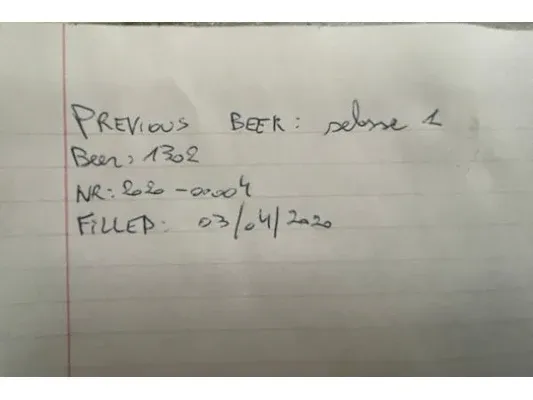 PREVIOUS BEER: selosse 1
Beer: 1302
NR: 2020-00004
FILLED: 03/04/2020